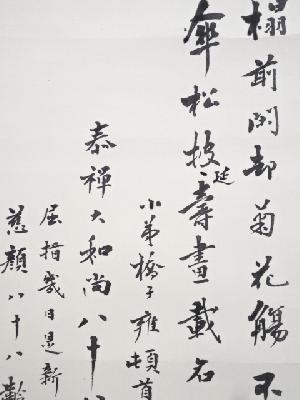 榻前閑却菊花觴不
傘松披延壽畫載名
小弟橋子雍頓首
泰禅大和尚八十八
屈指幾日是新
慈顔八十八齢